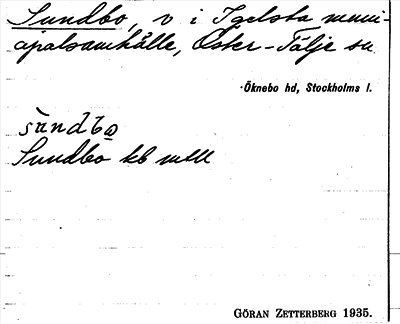 Sundbo, v i Igelsta muni-
cipalsamhälle, Öster-Tälje sn
Öknebo hd, Stockholms l.
sùndbω
Sundbo kb
GÖRAN ZETTERBERG 1935.